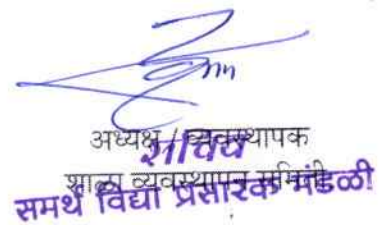 अध्यक्ष / व्यवस्थापक
सचिव
शाळा व्यवस्थापन समिती
समर्थ विद्या प्रसारक मंडळी